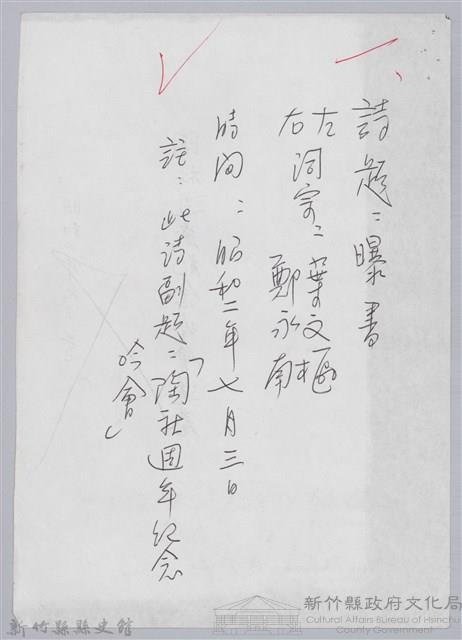 一、
詩題：曝書
左 詞宗：葉文樞
右 鄭永南
時間：昭和二年七月三日
註：此诗副題：「陶社週年纪念
吟會」
新竹縣縣史館
新竹縣政府文化局
Cultural Affairs Bureau of Hsinchu
County Government